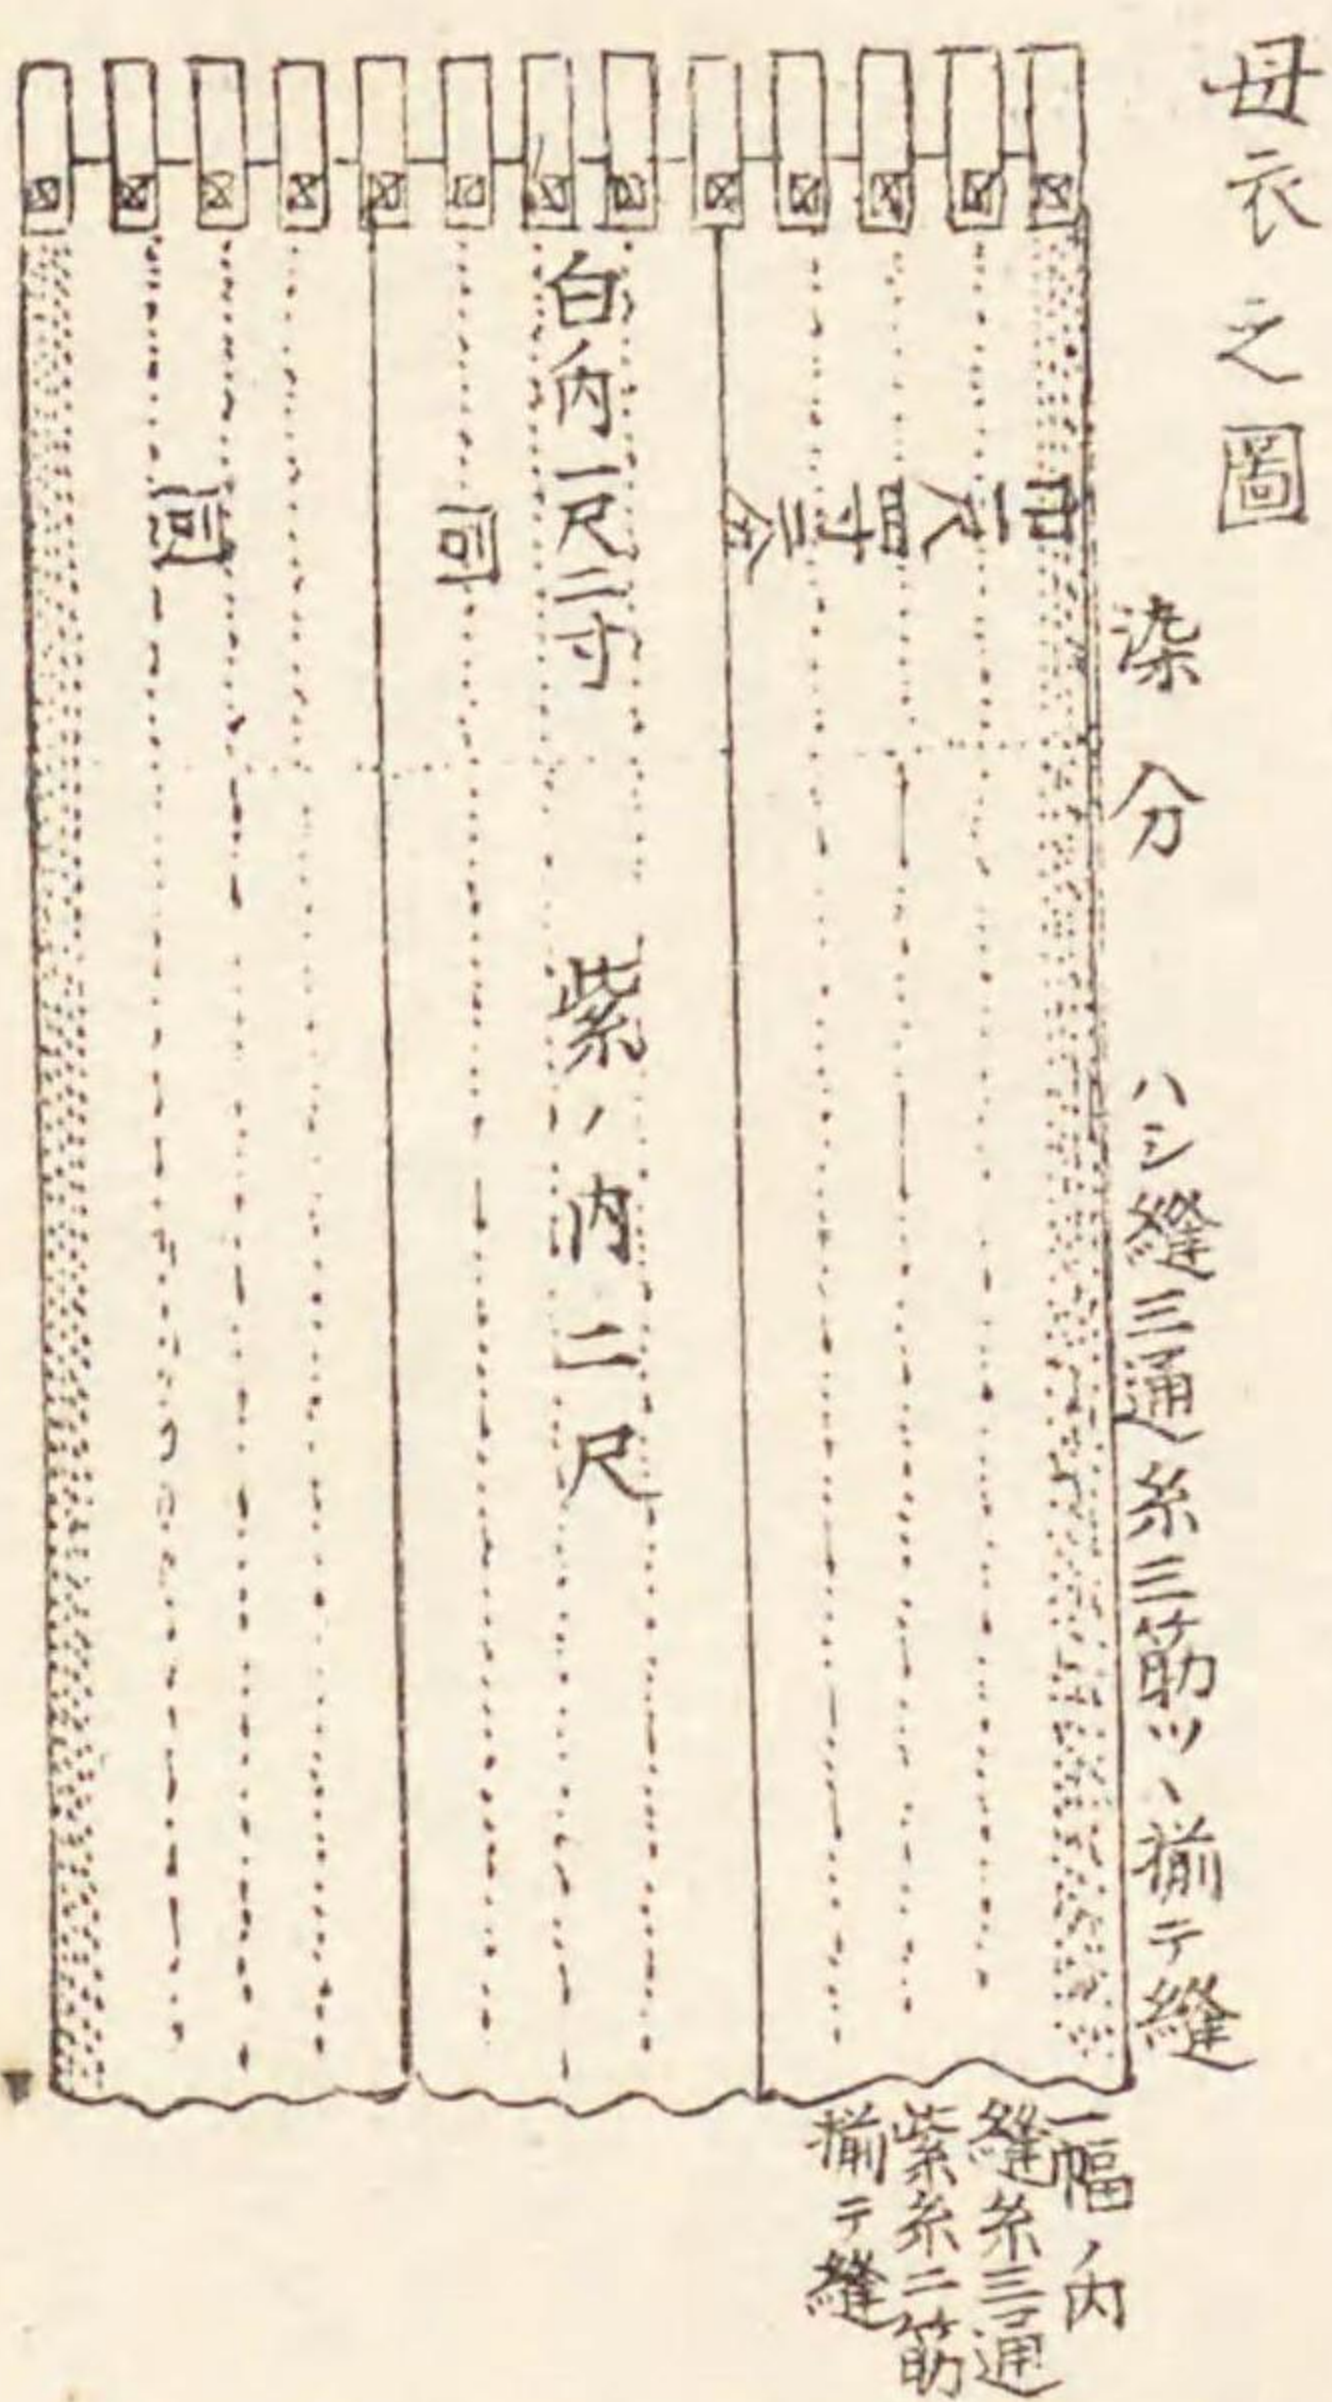 母衣之圖
染分
ハシ縫三通糸三筋ツヽ揃テ縫
巾一尺四寸三分
白ノ内一尺二寸
紫ハ内二尺
同
同
一幅ノ内
縫糸三通
紫糸二筋
揃テ縫